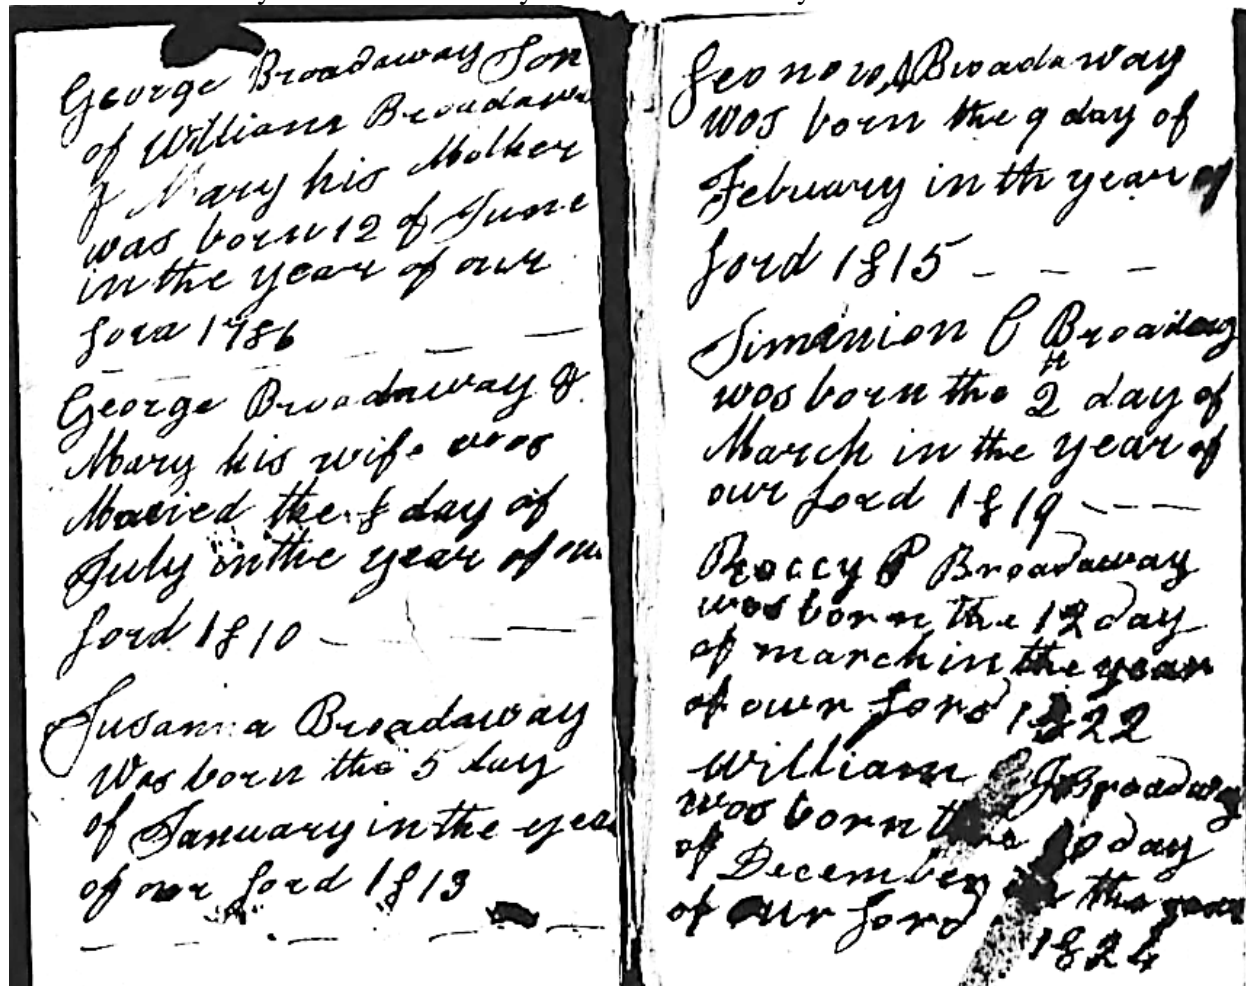 George Broadaway Son
of William Broadaway
& Mary his Mother
was born 12 of June
in the year of our
Lord 1786
George Broadaway &
Mary his wife was
Maried the 8 day of
July in the year of our
Lord 1810
Susanna Broadaway
Was born the 5 day
of January in the year
of our Lord 1813
Broadaway
was born the 9 day of
Febuary in the year of
Lord 1815
C Broadaway
was born the 2 day of
March in the year of
our Lord 1819
P Broadaway
was born the 12 day
of march in the year
of our Lord 1822
William J Broadaway
was born the day
of December in the year
of our Lord
1824